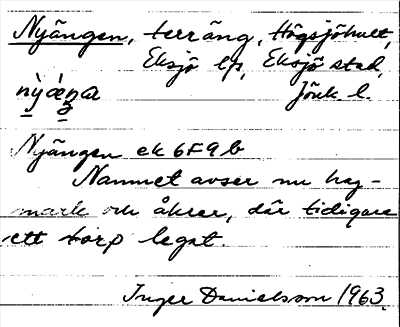 Nyängen, terräng, Högsjöhult,
Eksjö lfs, Eksjö stad,
Jönk. l.
Nyängen ek 6F9b
Namnet avser nu hag-
mark och åkrar, där tidigare
ett torp legat.
Inger Danielsson 1963